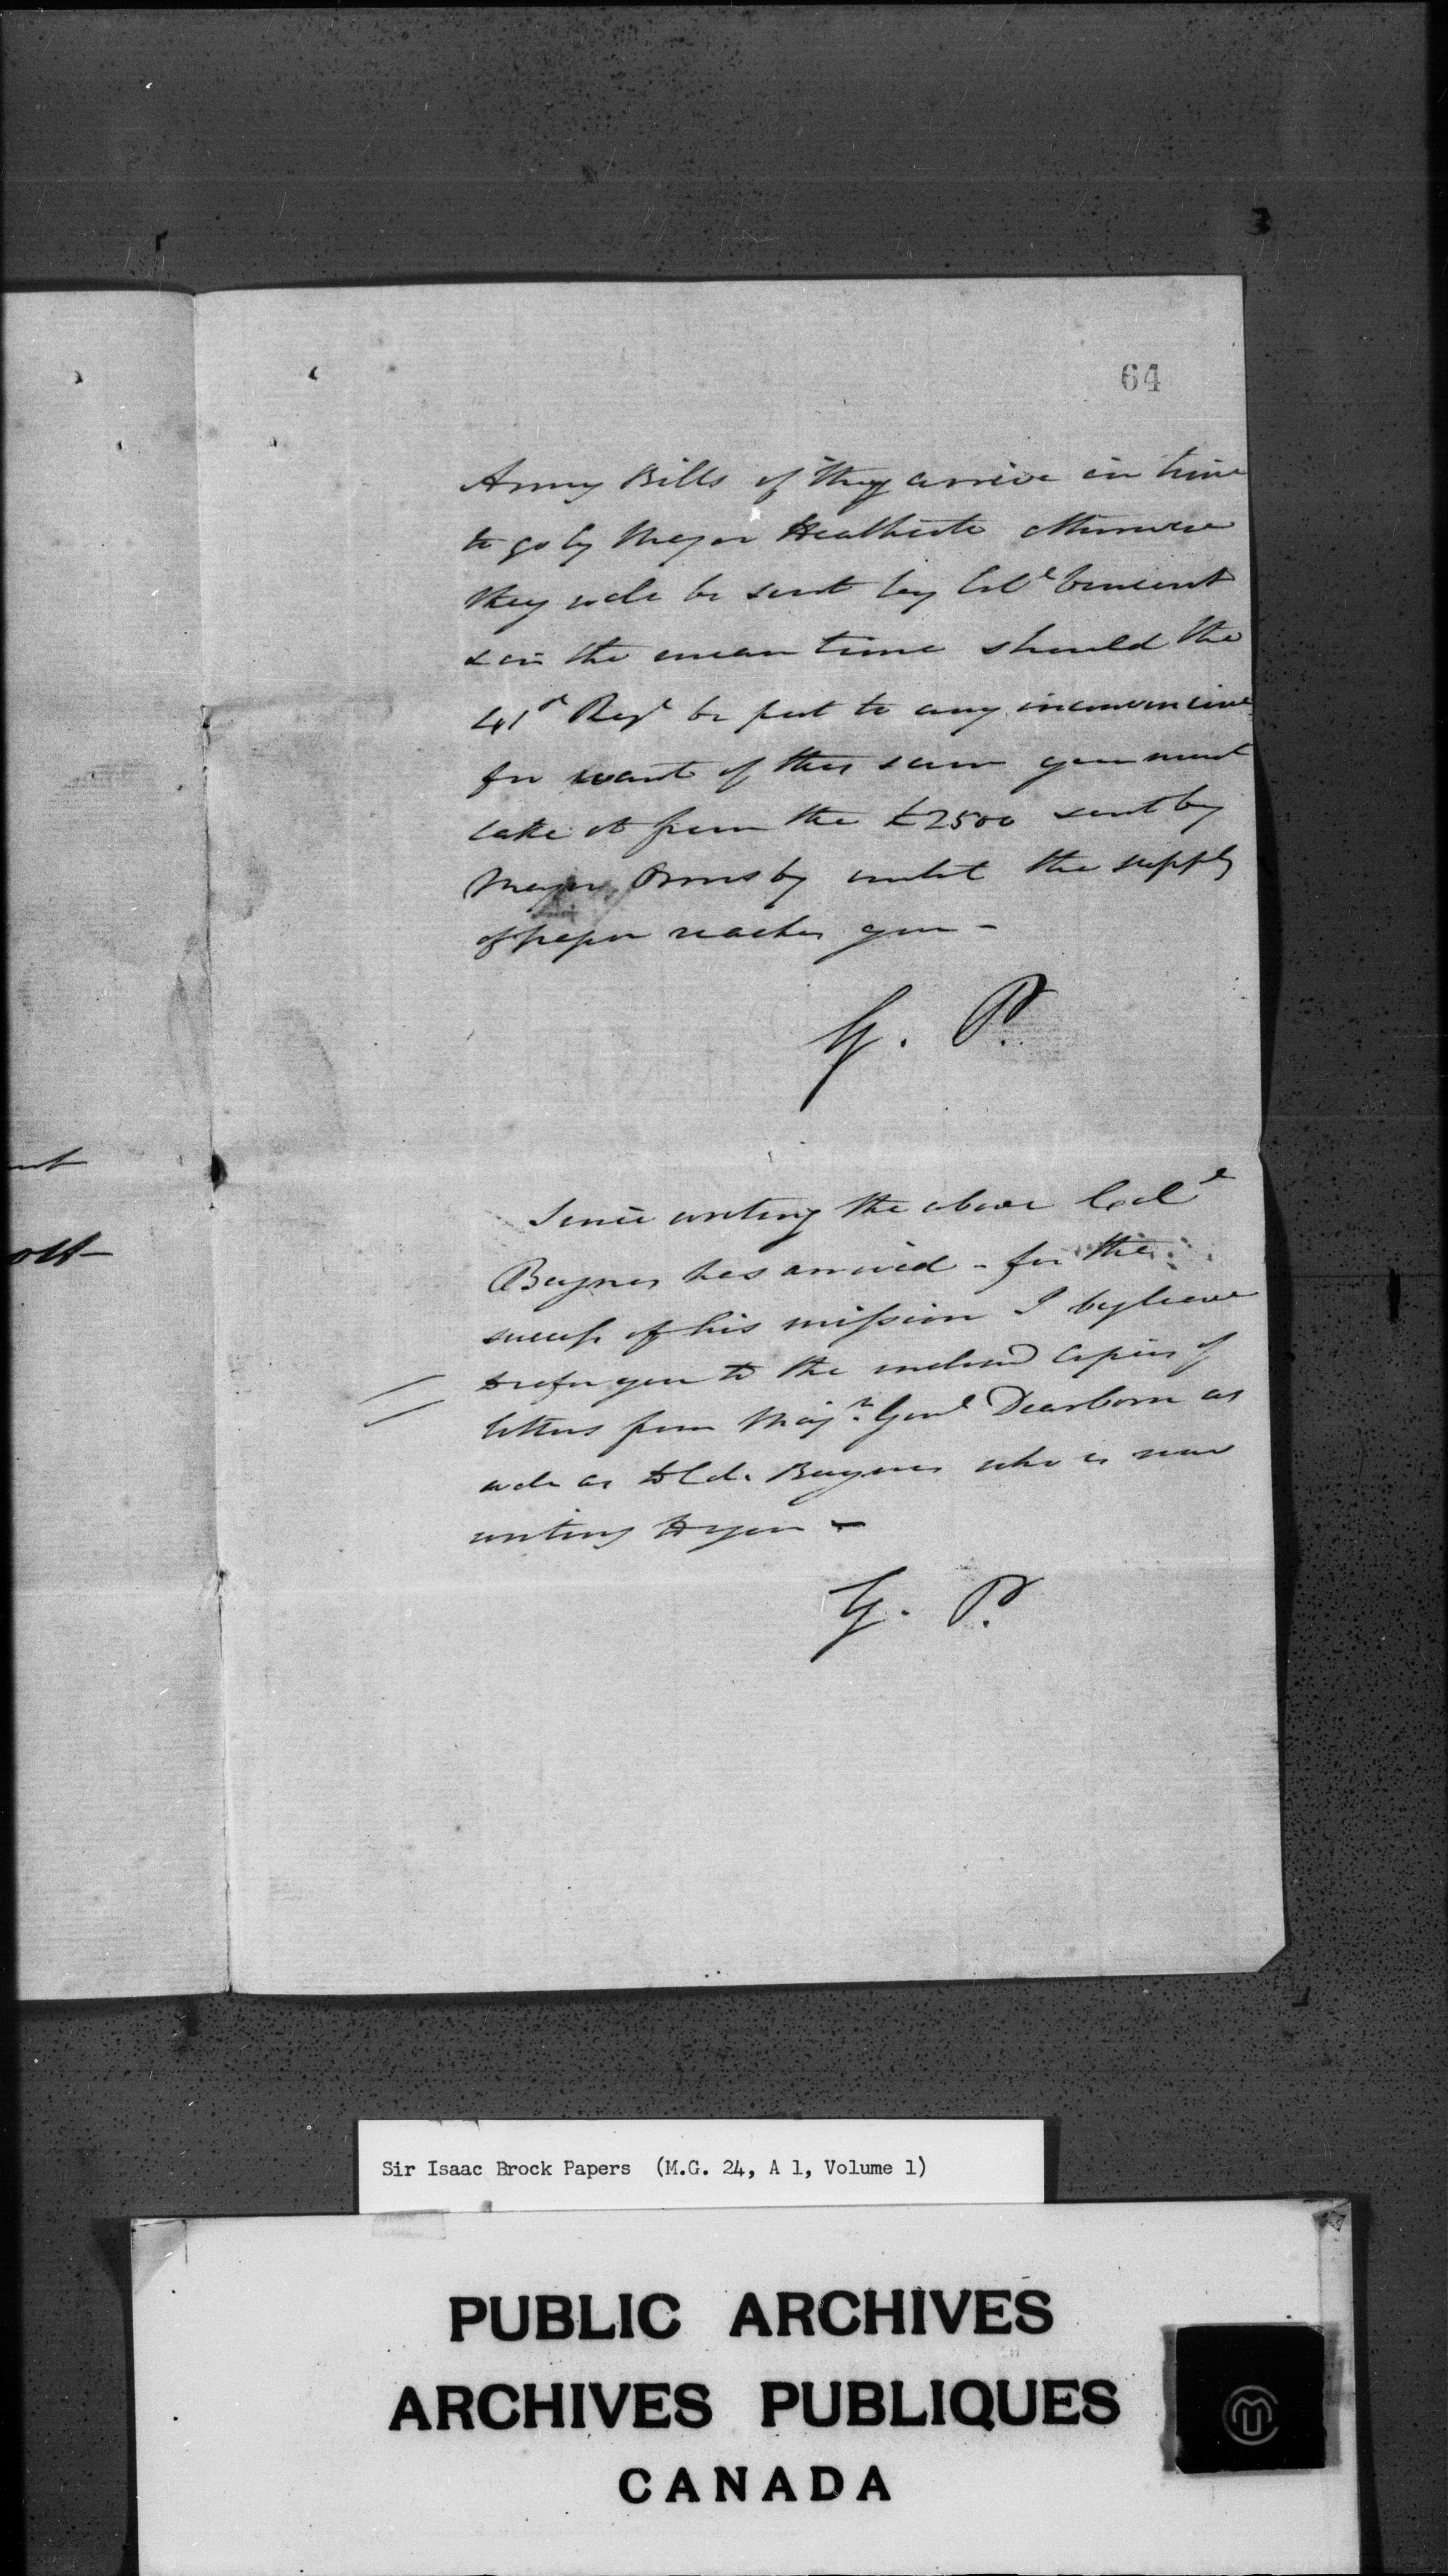 64
Army Bills if they arrive in time
to go by Major Heathcote otherwise
they will be sent by Col.l Vincent
& in the mean time should the
41st Regt be put to any inconvenience
for want of this sum you must
take it from the £2500 sent by
Major Ormsby until the supply
of paper reaches you –
G. P.
Since writing the above Col.l
Baynes has arrived – for the
success of his mission I beg leave
to refer you to the inclosed copies of
letters from Majr. Genl Dearborn as
well as to Col. Baynes who is now
writing to you –
G. P.
Sir Isaac Brock Papers (M.G. 24, A 1, Volume 1)
PUBLIC ARCHIVES
ARCHIVES PUBLIQUES
CANADA